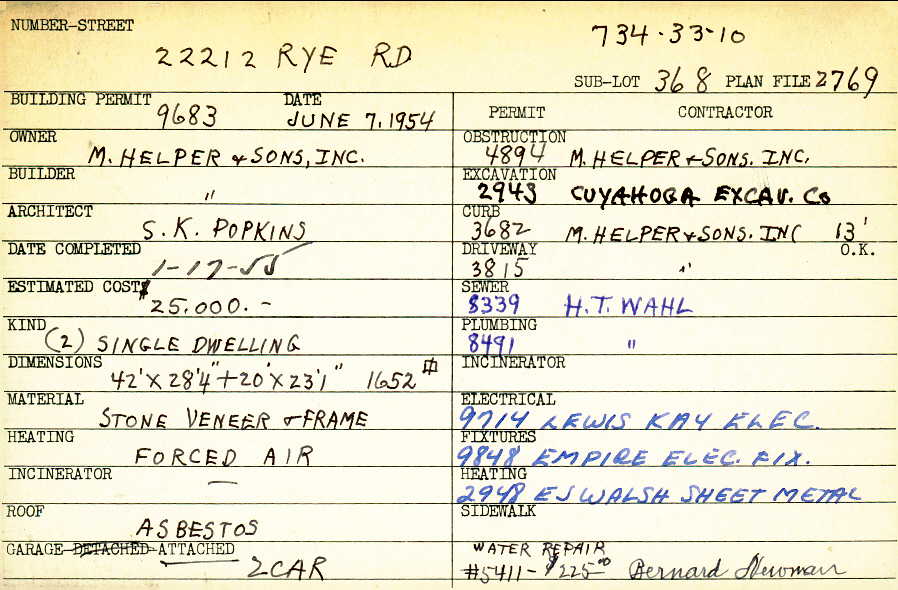 NUMBER-STREET
22212 RYE RD
734-33-10
SUB-LOT 368 PLAN FILE 2769
BUILDING PERMIT DATE
9683 JUNE 7, 1954
OWNER
M. HELPER & SONS, INC.
BUILDER
"
ARCHITECT
S. K. POPKINS
DATE COMPLETED
1-17-55
ESTIMATED COST $
25,000.-
KIND
(2) SINGLE DWELLING
DIMENSIONS
42'X28'4"+20'X23'1" 1652
MATERIAL
STONE VENEER & FRAME
HEATING
FORCED AIR
INCINERATOR
—
ROOF
ASBESTOS
GARAGE-DETACHED-ATTACHED
2 CAR
PERMIT CONTRACTOR
OBSTRUCTION
4894 M. HELPER & SONS. INC.
EXCAVATION
2943 CUYAHOGA EXCAV. Co
CURB
3682 M. HELPER & SONS. INC 13'
DRIVEWAY O.K.
3815 "
SEWER
8339 H.T. WAHL
PLUMBING
8491 "
INCINERATOR
ELECTRICAL
9714 LEWIS KAY ELEC.
FIXTURES
9848 EMPIRE ELEC. FIX.
HEATING
2948 EJ WALSH SHEET METAL
SIDEWALK
WATER REPAIR
#5411- $225.00 Bernard Newman